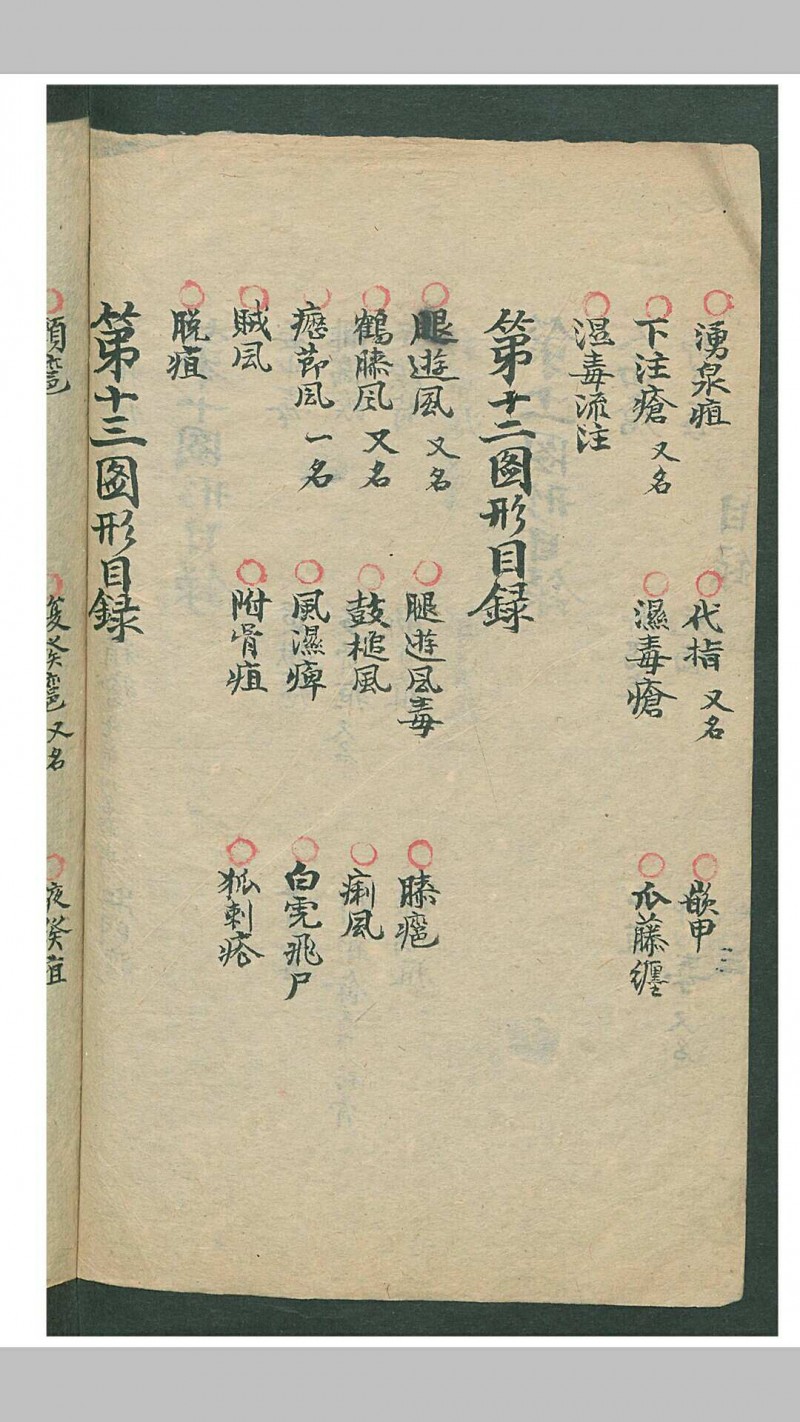 湧泉疽 代指 又名 嵌甲
下注瘡 又名 濕毒瘡 瓜藤纏
濕毒流注
第十二图形目録
腿遊風 又名 腿遊风毒 膝癰
鶴膝风 又名 鼓槌風 痢風
癧節风 一名 風濕痺 白虎飛尸
賊风 附骨疽 狐刺瘡
脱疽
第十三图形目録
又名